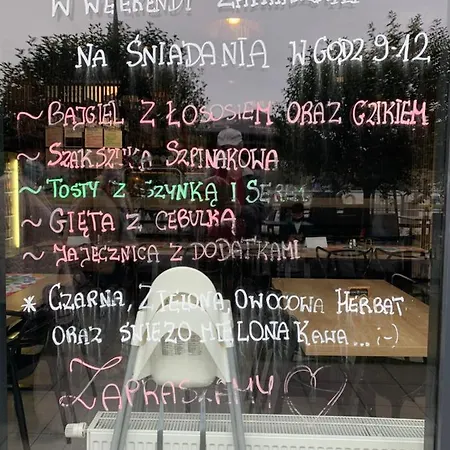 W WEEKENDY ZAPRASZAMY
NA ŚNIADANIA W GODZ 9-12
~ BAJGIEL Z ŁOSOSIEM ORAZ GZIKIEM
~ SZAKSZUKA SZPINAKOWA
~ TOSTY Z SZYNKĄ I SEREM
~ GIĘTA Z CEBULKĄ
~ JAJECZNICA Z DODATKAMI
* CZARNA, ZIELONA, OWOCOWA HERBAT
ORAZ ŚWIEŻO MIELONA KAWA... ;-)
ZAPRASZAMY